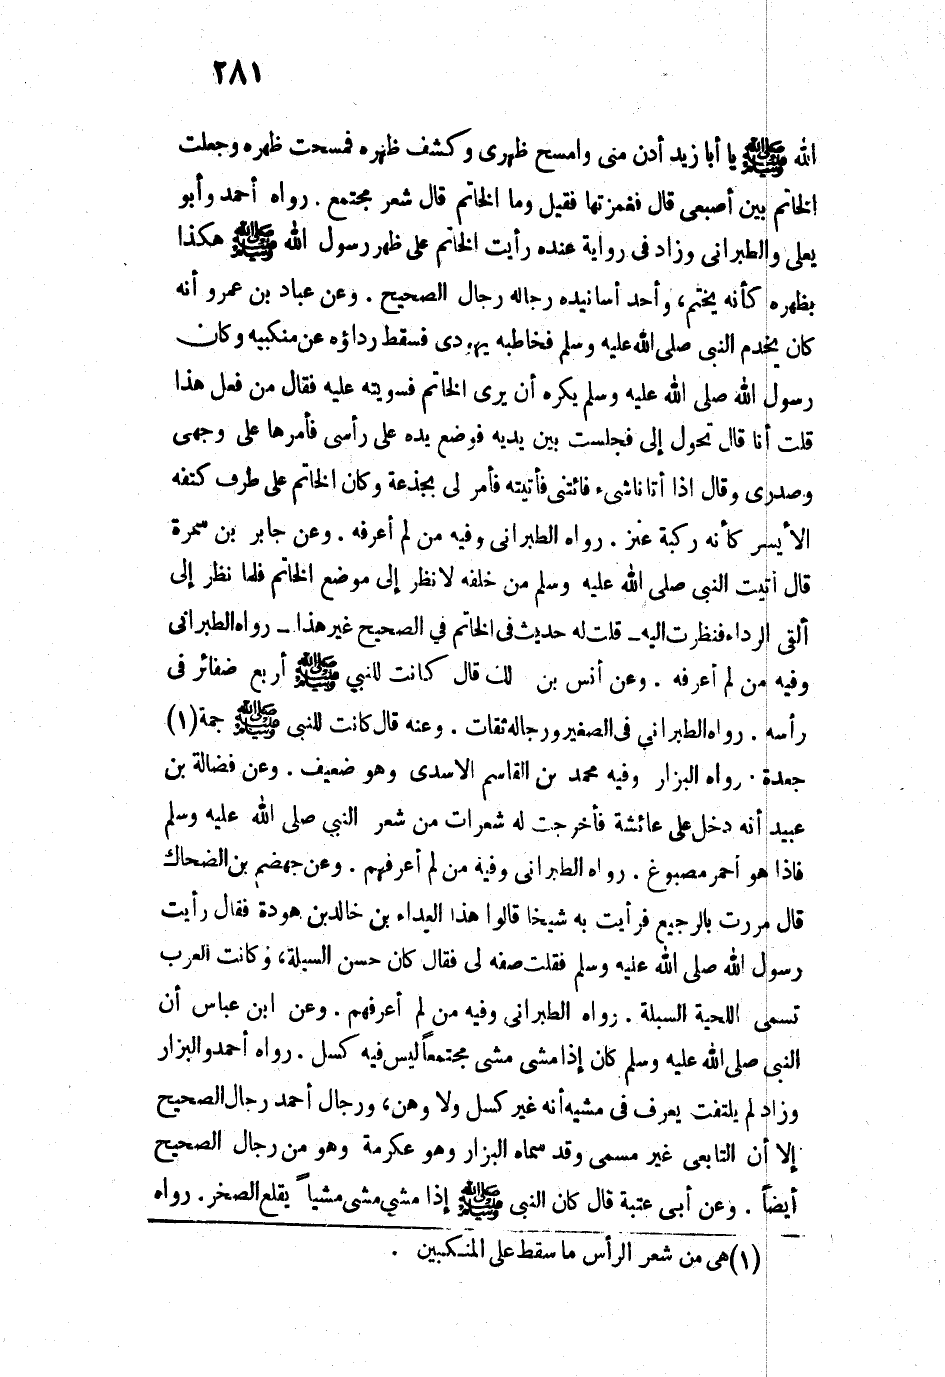 ٢٨١
الله ﷺ يا أبا زيد أدن منى وامسح ظهرى وكشف ظهره فمسحت ظهره وجعلت
الخاتم بين أصبعى قال فغمزتها فقيل وما الخاتم قال شعر مجتمع . رواه أحمد وأبو
يعلى والطبرانى وزاد فى رواية عنده رأيت الخاتم على ظهر رسول الله ﷺ هكذا
بظهره كأنه يختم، وأحد أسانيده رجاله رجال الصحيح . وعن عباد بن عمرو أنه
كان يخدم النبى صلى الله عليه وسلم فخاطبه يهودى فسقط رداؤه عن منكبيه وكان
رسول الله صلى الله عليه وسلم يكره أن يرى الخاتم فسويته عليه فقال من فعل هذا
قلت أنا قال تحول إلى فجلست بين يديه فوضع يده على رأسى فأمرها على وجهى
وصدرى وقال اذا أتانا شىء فائتنى فأتيته فأمر لى بجذعة وكان الخاتم على طرف كتفه
الأيسر كأنه ركبة عنز . رواه الطبرانى وفيه من لم أعرفه . وعن جابر بن سمرة
قال أتيت النبى صلى الله عليه وسلم من خلفه لانظر إلى موضع الخاتم فلما نظر إلى
ألقى الرداء فنظرت اليه ـ قلت له حديث فى الخاتم في الصحيح غير هذا ـ رواه الطبرانى
وفيه من لم أعرفه . وعن أنس بن لك قال كانت للنبي ﷺ أربع ضفائر فى
رأسه . رواه الطبراني فى الصغير ورجاله ثقات . وعنه قال كانت للنبى ﷺ جمة (١)
جعدة . رواه البزار وفيه محمد بن القاسم الاسدى وهو ضعيف . وعن فضالة بن
عبيد أنه دخل على عائشة فأخرجت له شعرات من شعر النبي صلى الله عليه وسلم
فاذا هو أحمر مصبوغ . رواه الطبرانى وفيه من لم أعرفهم . وعن جهضم بن الضحاك
قال مررت بالرجيع فرأيت به شيخا قالوا هذا العداء بن خالد بن هودة فقال رأيت
رسول الله صلى الله عليه وسلم فقلت صفه لى فقال كان حسن السبلة، وكانت العرب
تسمى اللحية السبلة . رواه الطبرانى وفيه من لم أعرفهم . وعن ابن عباس أن
النبى صلى الله عليه وسلم كان إذا مشى مشى مجتمعاً ليس فيه كسل . رواه أحمد والبزار
وزاد لم يلتفت يعرف فى مشيه أنه غير كسل ولا وهن، ورجال أحمد رجال الصحيح
إلا أن التابعى غير مسمى وقد سماه البزار وهو عكرمة وهو من رجال الصحيح
أيضاً . وعن أبى عتبة قال كان النبى ﷺ إذا مشي مشى مشياً يقلع الصخر . رواه
(١) هى من شعر الرأس ما سقط على المنكبين .